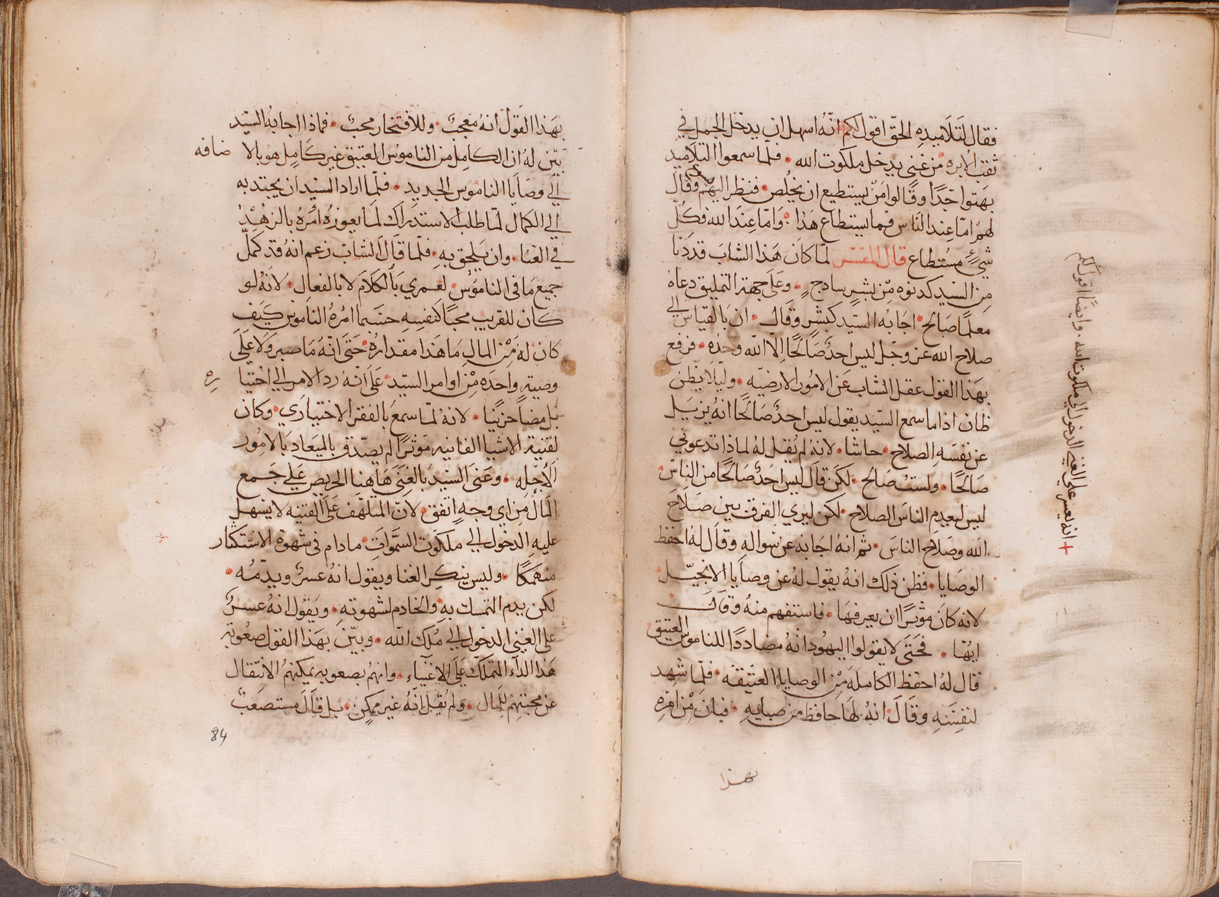 فقال لتلاميذه الحق اقول لكم انه اسهل ان يدخل الجمل في
ثقب الابره من غني يدخل ملكوت الله • فلما سمعوا التلاميذ
بهتوا جدا وقالوا من يستطيع ان يخلص • فنظر اليهم وقال
لهم اما عند الناس فما يستطاع هذا • واما عند الله فكل
شيء مستطاع قال المفسر لما كان هذا الشاب قد دنا
من السيد كدنوه من بشر ساذج • وعلى جهة التمليق دعاه
معلما صالح • اجابه السيد كبشر وقال • ان بالقياس الى
صلاح الله عز وجل ليس احد صالحا الا الله وحده • فرفع
بهذا القول عقل الشاب عن الامور الارضيه • وليلا يظن
ظان اذا ما سمع السيد يقول ليس احد صالحا انه يزيل
عن نفسه الصلاح • حاشا • لانه لم يقل له لماذا تدعوني
صالحا • ولست صالح • لكن قال ليس احد صالحا من الناس
ليس ليعدم الناس الصلاح • لكن ليري الفرق بين صلاح
الله وصلاح الناس • ثم انه اجابه عن سواله وقال له احفظ
الوصايا • فظن ذلك انه يقول له عن وصايا الانجيل
لانه كان موثرا ان يعرفها • فاستفهم منه وقال
ايها • فحتى لا يقولوا اليهود انه مضاددا للناموس العتيق
قال له احفظ الكامله من الوصايا العتيقه • فلما شهد
لنفسه وقال انه لها حافظ من صبايه • فبان من امره
بهذا
+ انه لعسر على الغني الدخول الى ملكوت الله • وايضا اقول لكم
بهذا القول انه معجب • وللافتخار محب • فماذا اجابه السيد
بين له ان الكامل من الناموس العتيق غير كامل هو بالا ضافه
الى وصايا الناموس الجديد • فلما اراد السيد ان يجتذبه
الى الكمال لما طلب الاستدراك لما يعوزه امره بالزهد
في الغنا • وان يلحق به • فلما قال الشاب زعم انه قد كمل
جميع ما في الناموس • لعمري بالكلام لا بالفعال • لانه لو
كان للقريب محبا كنفسه حسبما امره الناموس كيف
كان له من المال ما هذا مقداره • حتى انه ما صبر ولا على
وصية واحده من اوامر السيد • على انه رد الامر الى اختيا ره
بل مضا حزينا • لانه لما سمع بالفقر الاختياري • وكان
لقنية الاشيا الفانيه موثرا لم يصدق بالميعاد بالامور
الاجله • وعنى السيد بالغني هاهنا الحريص على جمع
المال من اي وجه اتفق • لان المتلهف على القنيه لا يسهل
عليه الدخول الى ملكوت السموات • ما دام في شهوة الاستكثار
منهمكا • وليس ينكر الغنا ويقول انه عسر ويذمه •
لكن يذم التمسك به والخادم لشهوته • ويقول انه عسر
على الغني الدخول الى ملك الله • وبين بهذا القول صعوبة
هذا الداء المتملك على الاغنياء • وانهم بصعوبه يمكنهم الانتقال
عن محبتهم للمال • ولم يقل انه غير ممكن • بل قال مستصعب
84